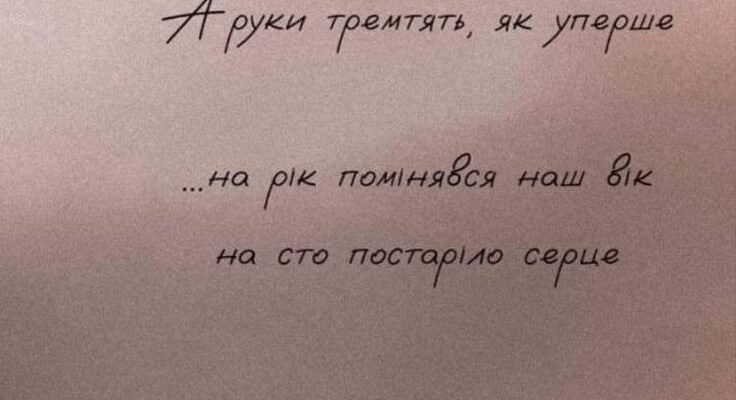 А руки тремтять, як уперше
...на рік помінявся наш вік
на сто постаріло серце